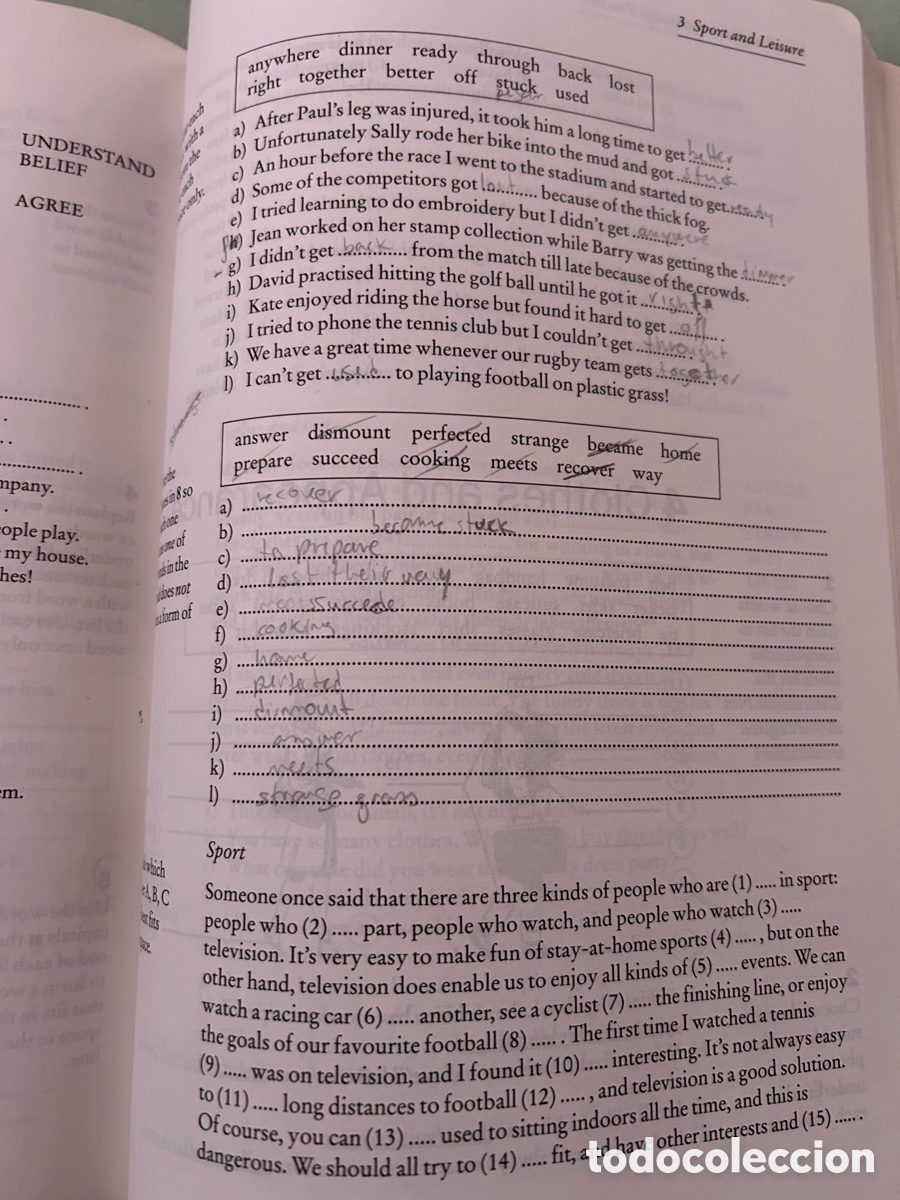 3 Sport and Leisure
anywhere dinner ready through back lost
right together better off stuck used
a) After Paul's leg was injured, it took him a long time to get better
b) Unfortunately Sally rode her bike into the mud and got ..........
c) An hour before the race I went to the stadium and started to get ready
d) Some of the competitors got lost.......... because of the thick fog.
e) I tried learning to do embroidery but I didn't get ..........
f) Jean worked on her stamp collection while Barry was getting the dinner
g) I didn't get back.......... from the match till late because of the crowds.
h) David practised hitting the golf ball until he got it right
i) Kate enjoyed riding the horse but found it hard to get off
j) I tried to phone the tennis club but I couldn't get throught
k) We have a great time whenever our rugby team gets together
l) I can't get used to playing football on plastic grass!
answer dismount perfected strange became home
prepare succeed cooking meets recover way
a) recover
b) became stuck
c) to prepare
d) lost their way
e) succede
f) cooking
g) home
h) perfected
i) dismount
j) answer
k) meets
l) strange grass
UNDERSTAND
BELIEF
AGREE
mpany.
ople play.
my house.
hes!
em.
the
es in 8 so
one
one of
ds in the
does not
a form of
which
A, B, C
fits
Sport
Someone once said that there are three kinds of people who are (1) ..... in sport:
people who (2) ..... part, people who watch, and people who watch (3) .....
television. It's very easy to make fun of stay-at-home sports (4) ....., but on the
other hand, television does enable us to enjoy all kinds of (5) ..... events. We can
watch a racing car (6) ..... another, see a cyclist (7) ..... the finishing line, or enjoy
the goals of our favourite football (8) ..... . The first time I watched a tennis
(9) ..... was on television, and I found it (10) ..... interesting. It's not always easy
to (11) ..... long distances to football (12) ....., and television is a good solution.
Of course, you can (13) ..... used to sitting indoors all the time, and this is
dangerous. We should all try to (14) ..... fit, and have other interests and (15) ..... .
todocoleccion